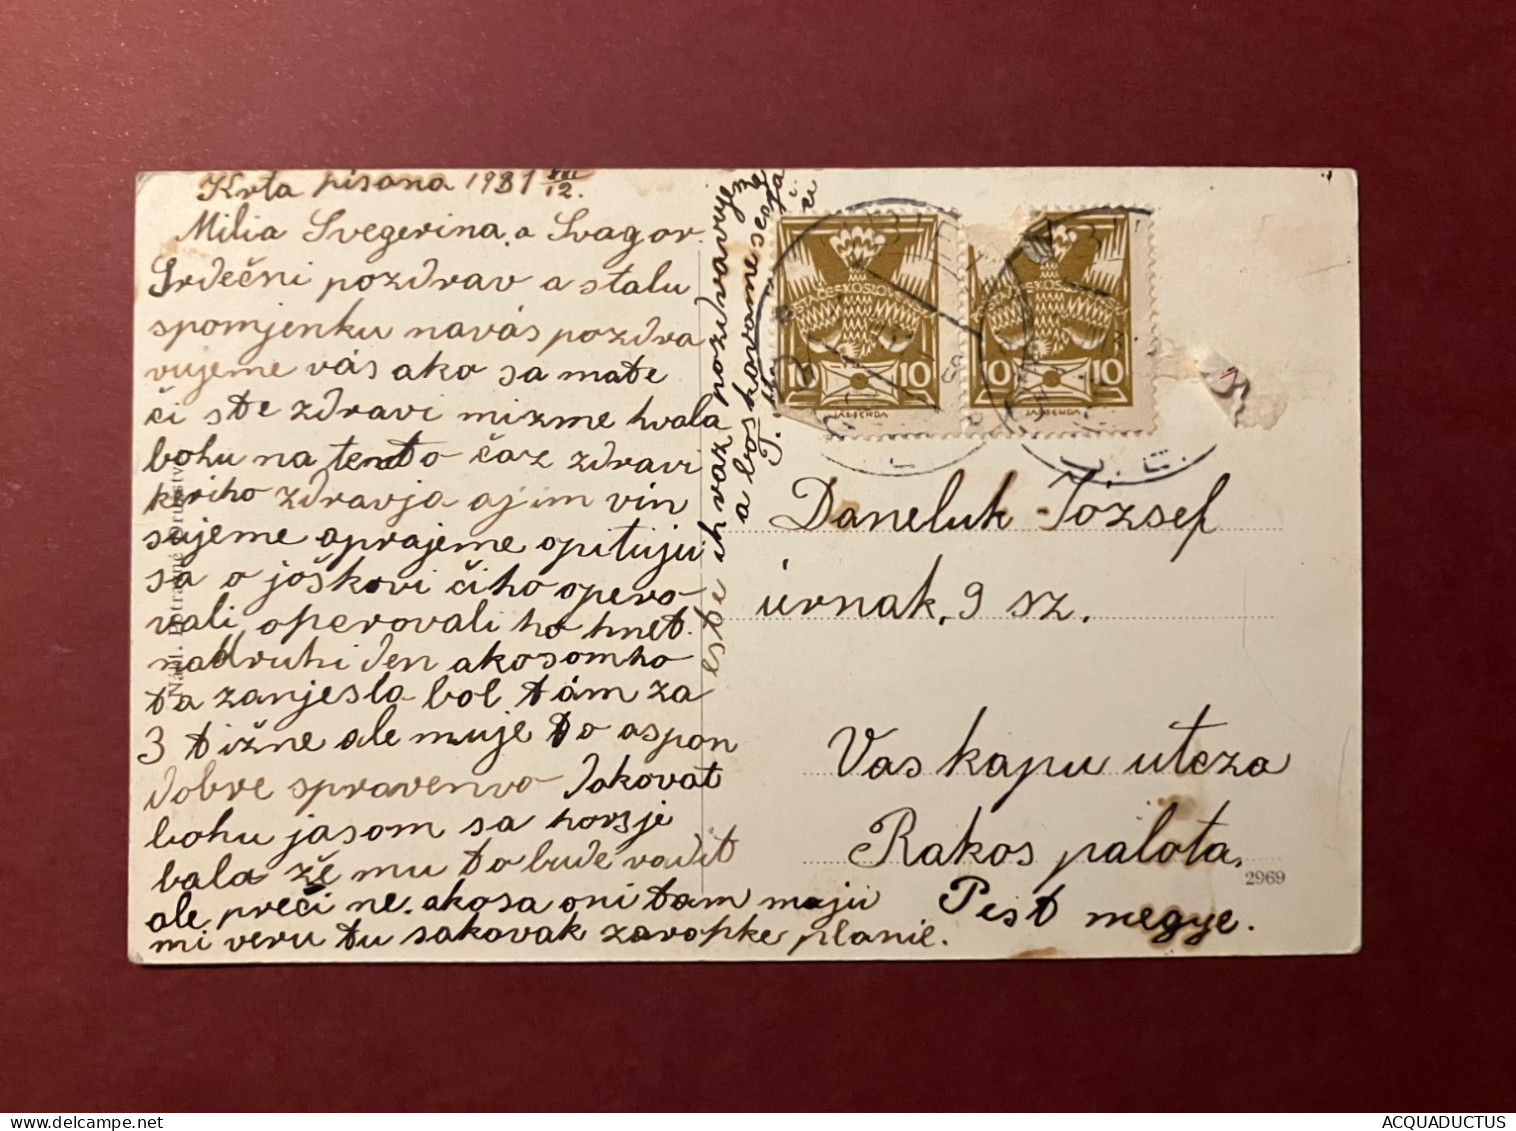 Krta pisana 1921 VIII/12.
Milia Svegerina. a Svagor.
Srdečni pozdrav a stalu
spomjenku navás pozdra
vujeme vás ako sa mate
či ste zdravi mizme hvala
bohu na tento čaz zdravi
keriho zdravja aj im vin
sujeme aprajeme opituju
sa o joškovi čiho opero
vali operovali ho hnet.
nadruhi den akosomho
ta zanjesla bol tám za
3 tižne ale muje to aspon
dobre spravenvo dakovat
bohu jasom sa horsje
bala že mu to bude vadit
ale preči ne. akosa oni tam maju
mi veru tu sakovak zaropke planie.
este ih vaz pozdravujem
a boskavame sesja
Daneluk József
úrnak, 9 sz.
Vaskapu uteza
Rakos palota.
Pest megye.
2969
ČESKOSLO
10 10
10 10
JAR. BENDA
JAR. BENDA
ACQUADUCTUS